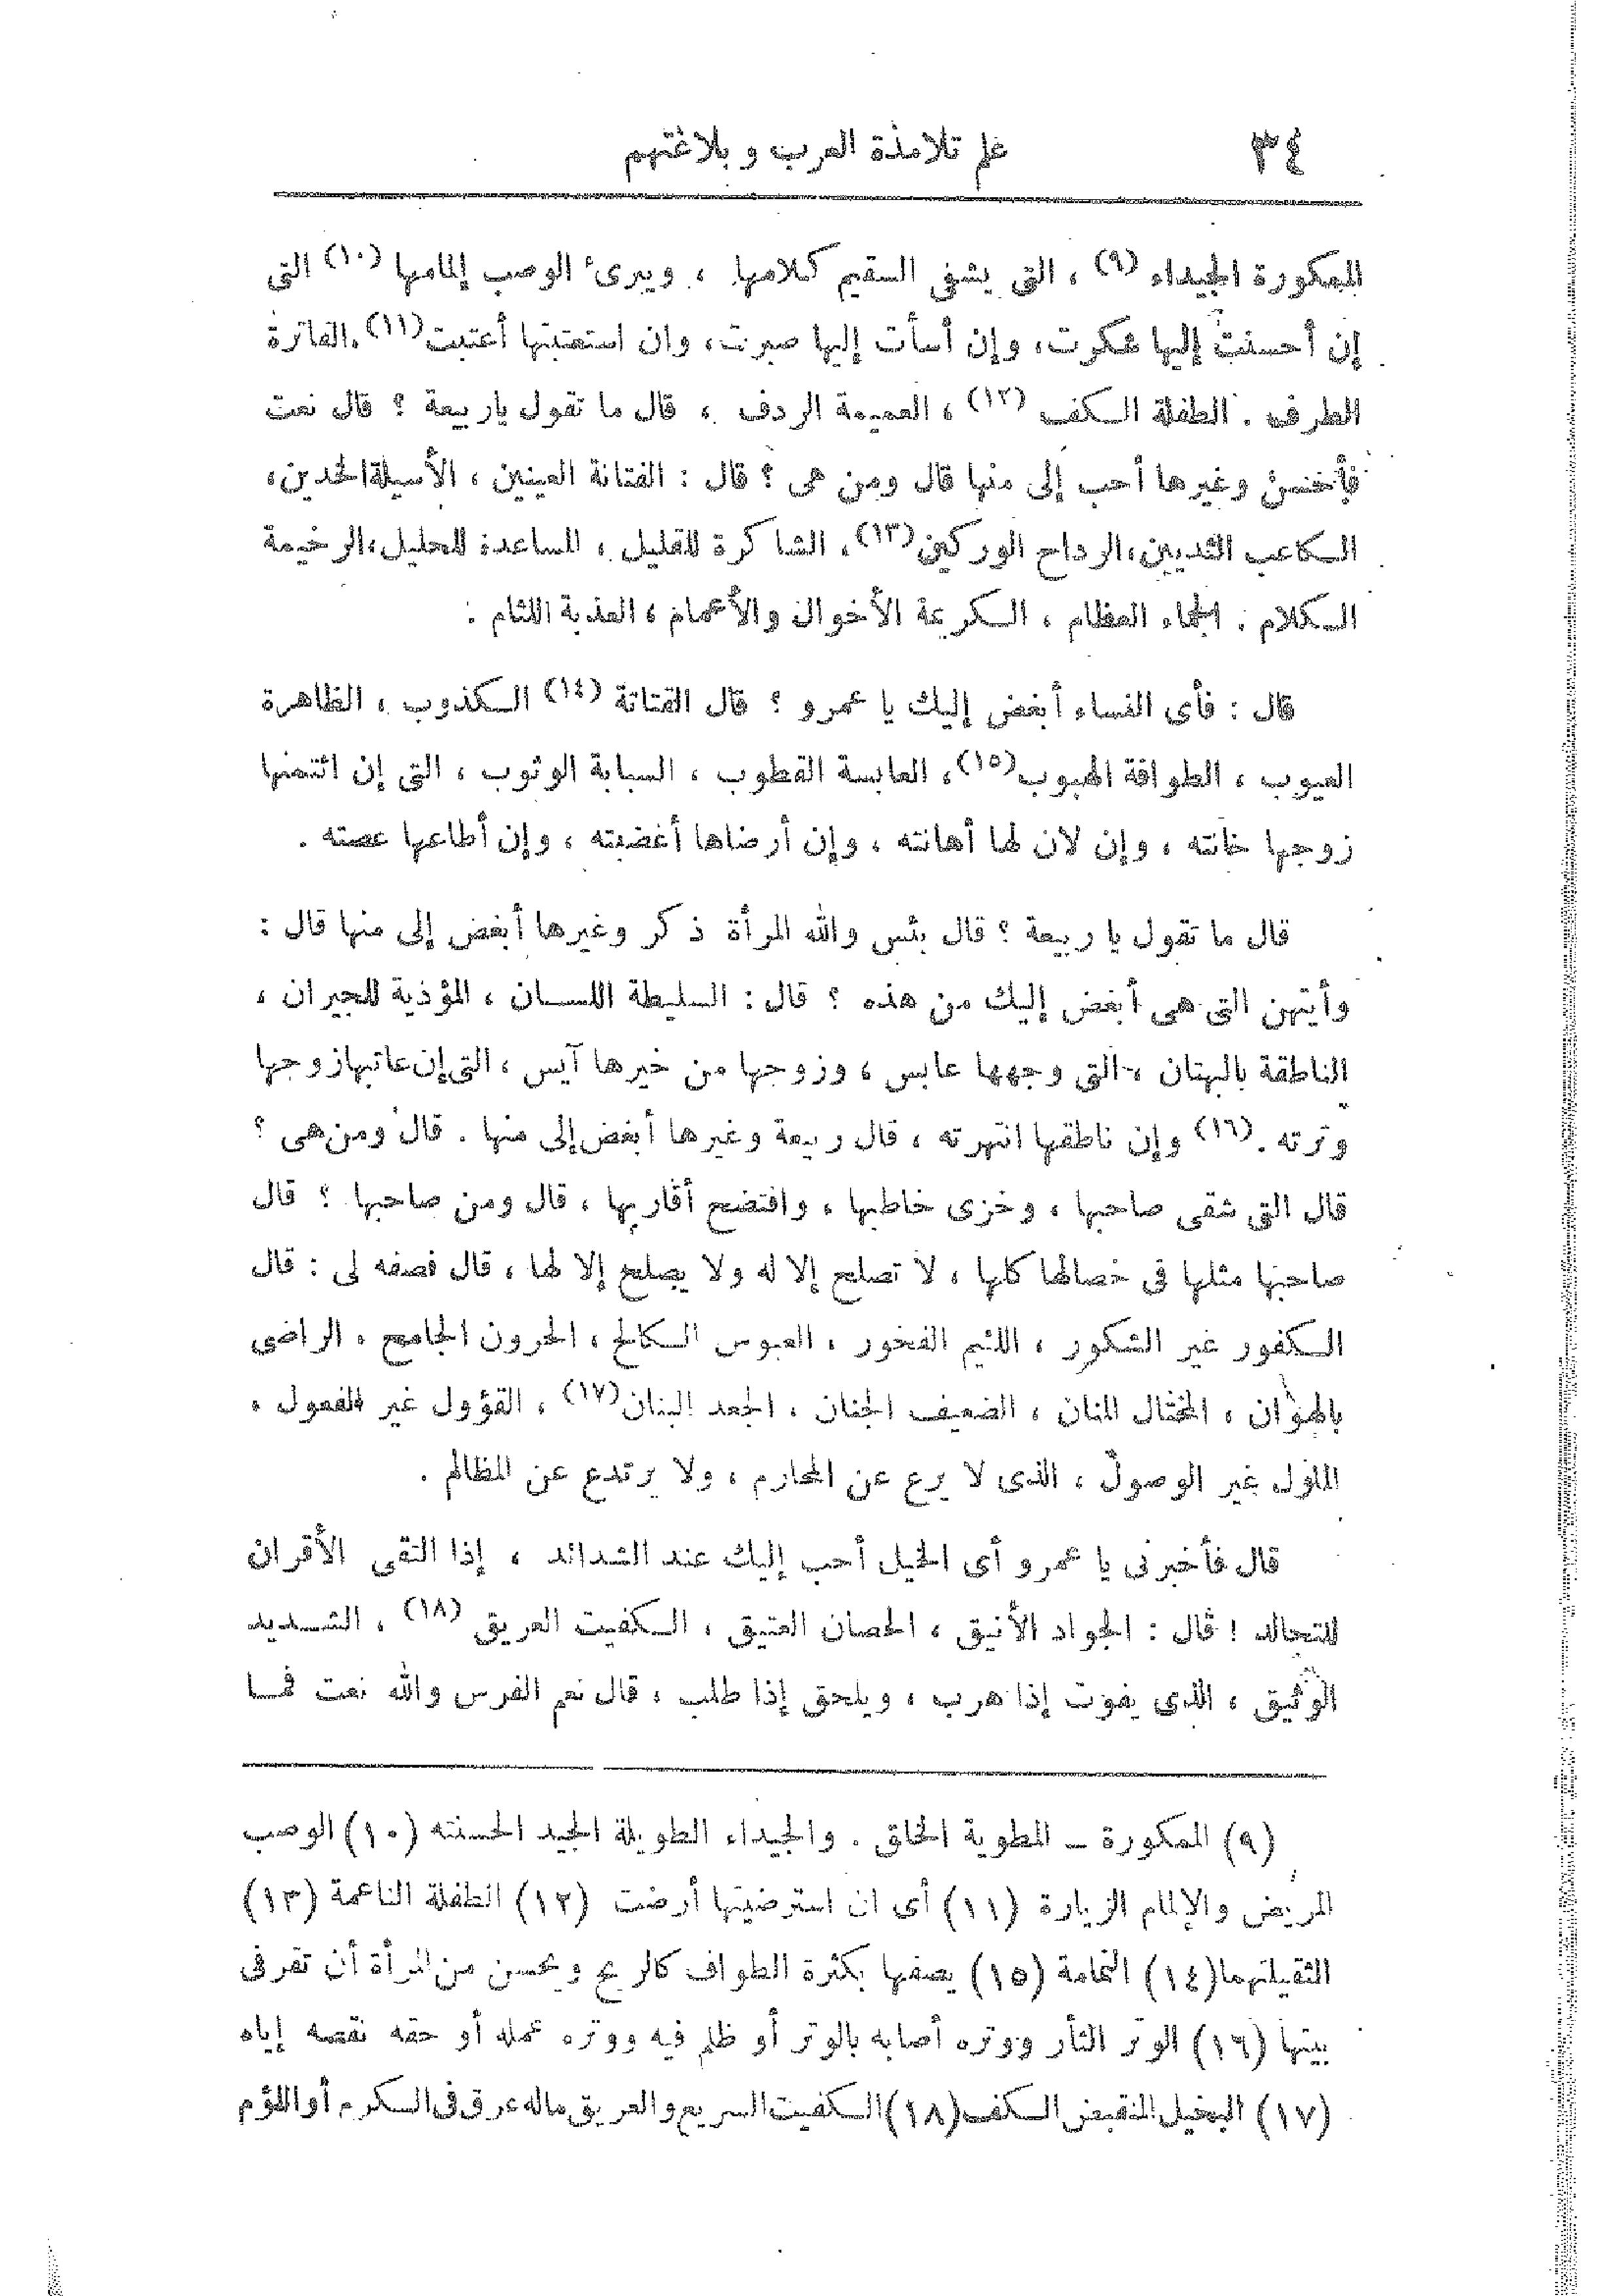 ٣٤
علم تلامذة العرب وبلاغتهم
الممكورة الجيداء (٩) ، التى يشفى السقيم كلامها ، ويبرىء الوصب إلمامها (١٠) التى
إن أحسنت إليها شكرت، وإن أسأت إليها صبرت، وان استعتبتها أعتبت (١١) . الفاترة
الطرف . الطفلة الكف (١٢) ، العميمة الردف ، قال ما تقول ياربيعة ؟ قال نعت
فأحسن وغيرها أحب إلى منها قال ومن هى ؟ قال : الفتانة العينين ، الأسيلة الخدين،
الكاعب الثديين، الرداح الوركين (١٣) ، الشاكرة للقليل ، المساعدة للحليل، الرخيمة
الكلام . الجماء العظام ، الكريمة الأخوال والأعمام ، العذبة اللثام .
قال : فأى النساء أبغض إليك يا عمرو ؟ قال القتاتة (١٤) الكذوب ، الظاهرة
العيوب ، الطوافة الهبوب (١٥) ، العابسة القطوب ، السبابة الوثوب ، التى إن ائتمنها
زوجها خانته ، وإن لان لها أهانته ، وإن أرضاها أغضبته ، وإن أطاعها عصته .
قال ما تقول يا ربيعة ؟ قال بئس والله المرأة ذكر وغيرها أبغض إلى منها قال :
وأيتهن التى هى أبغض إليك من هذه ؟ قال : السليطة اللسان ، المؤذية للجيران ،
الناطقة بالبهتان ، التى وجهها عابس ، وزوجها من خيرها آيس ، التى إن عاتبها زوجها
وترته . (١٦) وإن ناطقها انتهرته ، قال ربيعة وغيرها أبغض إلى منها . قال ومن هى ؟
قال التى شقى صاحبها ، وخزى خاطبها ، وافتضح أقاربها ، قال ومن صاحبها ؟ قال
صاحبها مثلها فى خصالها كلها ، لا تصلح إلا له ولا يصلح إلا لها ، قال فصفه لى : قال
الكفور غير الشكور ، اللئيم الفخور ، العبوس الكالح ، الحرون الجامح ، الراضى
بالهوان ، المختال المنان ، الضعيف الجنان ، الجعد البنان (١٧) ، القؤول غير الفعول ،
الملول غير الوصول ، الذى لا يرع عن المحارم ، ولا يرتدع عن المظالم .
قال فأخبرنى يا عمرو أى الخيل أحب إليك عند الشدائد ، إذا التقى الأقران
للتجالد ! قال : الجواد الأنيق ، الحصان العتيق ، الكفيت العريق (١٨) ، الشديد
الوثيق ، الذى يفوت إذا هرب ، ويلحق إذا طلب ، قال نعم الفرس والله نعت فما
(٩) الممكورة – المطوية الخلق . والجيداء الطويلة الجيد الحسنته (١٠) الوصب
المريض والإلمام الزيارة (١١) أى ان استرضيتها أرضت (١٢) الطفلة الناعمة (١٣)
الثقيلتهما (١٤) النمامة (١٥) يصفها بكثرة الطواف كالريح ويحسن من المرأة أن تقر فى
بيتها (١٦) الوتر الثأر ووتره أصابه بالوتر أو ظلم فيه ووتره عمله أو حقه نقصه إياه
(١٧) البخيل المنقبض الكف (١٨) الكفيت السريع والعريق ماله عرق فى الكرم أو اللؤم